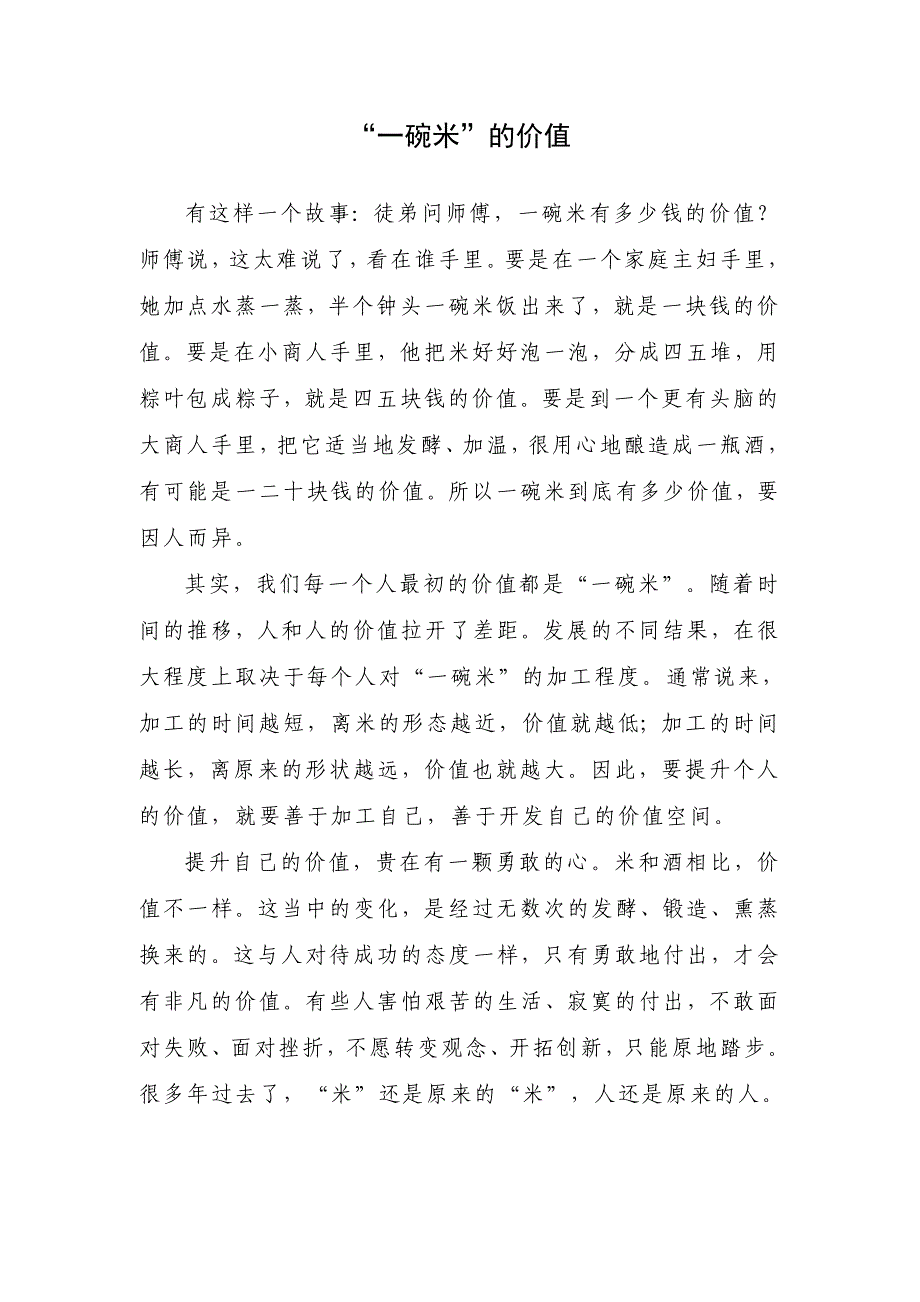 “一碗米”的价值
有这样一个故事：徒弟问师傅，一碗米有多少钱的价值？
师傅说，这太难说了，看在谁手里。要是在一个家庭主妇手里，
她加点水蒸一蒸，半个钟头一碗米饭出来了，就是一块钱的价
值。要是在小商人手里，他把米好好泡一泡，分成四五堆，用
粽叶包成粽子，就是四五块钱的价值。要是到一个更有头脑的
大商人手里，把它适当地发酵、加温，很用心地酿造成一瓶酒，
有可能是一二十块钱的价值。所以一碗米到底有多少价值，要
因人而异。
其实，我们每一个人最初的价值都是“一碗米”。随着时
间的推移，人和人的价值拉开了差距。发展的不同结果，在很
大程度上取决于每个人对“一碗米”的加工程度。通常说来，
加工的时间越短，离米的形态越近，价值就越低；加工的时间
越长，离原来的形状越远，价值也就越大。因此，要提升个人
的价值，就要善于加工自己，善于开发自己的价值空间。
提升自己的价值，贵在有一颗勇敢的心。米和酒相比，价
值不一样。这当中的变化，是经过无数次的发酵、锻造、熏蒸
换来的。这与人对待成功的态度一样，只有勇敢地付出，才会
有非凡的价值。有些人害怕艰苦的生活、寂寞的付出，不敢面
对失败、面对挫折，不愿转变观念、开拓创新，只能原地踏步。
很多年过去了，“米”还是原来的“米”，人还是原来的人。